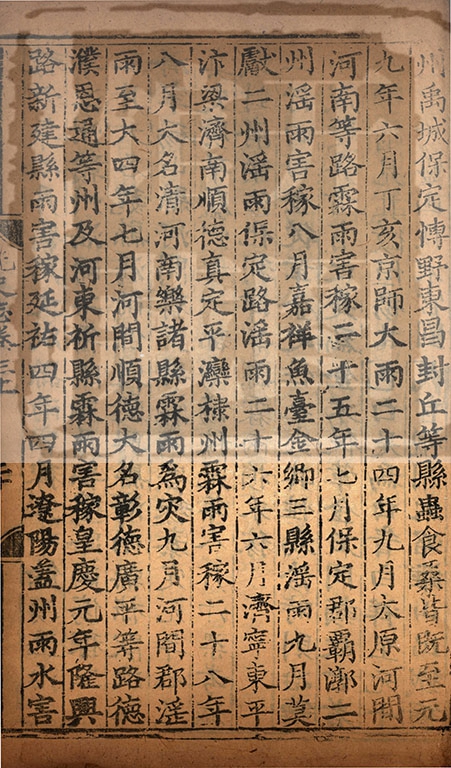 州禹城保定愽野東昌封丘等縣蟲食桑皆既至元
九年六月丁亥京師大雨二十四年九月太原河間
河南等路霖雨害稼二十五年七月保定郡霸漷二
州滛雨害稼八月嘉祥魚臺金鄉三縣滛雨九月莫
獻二州滛雨保定路滛雨二十六年六月濟寧東平
汴梁濟南順德真定平灤棣州霖雨害稼二十八年
八月大名清河南樂諸縣霖雨爲灾九月河間郡滛
雨至大四年七月河間順德大名彰德廣平等路德
濮恩通等州及河東祈縣霖雨害稼皇慶元年隆興
路新建縣雨害稼延祐四年四月遼陽盖州雨水害